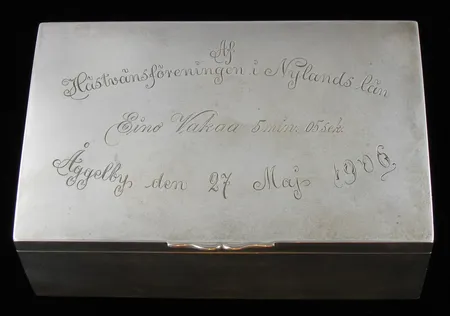 Af
Hästvänsföreningen i Nylands län
Eino Vakaa 5 min. 05 sek.
Åggelby den 27 Maj 1906